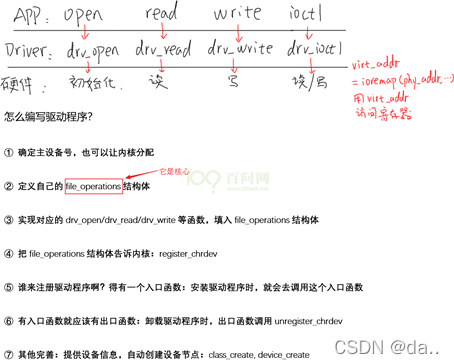 APP: open read write ioctl
Driver: drv_open drv_read drv_write drv_ioctl
硬件: 初始化 读 写 读/写
virt_addr
= ioremap(phy_addr,…)
用 virt_addr
访问寄存器
怎么编写驱动程序?
① 确定主设备号,也可以让内核分配
它是核心
② 定义自己的 file_operations 结构体
百问网
③ 实现对应的 drv_open/drv_read/drv_write 等函数,填入 file_operations 结构体
④ 把 file_operations 结构体告诉内核:register_chrdev
⑤ 谁来注册驱动程序啊?得有一个入口函数:安装驱动程序时,就会去调用这个入口函数
⑥ 有入口函数就应该有出口函数:卸载驱动程序时,出口函数调用 unregister_chrdev
⑦ 其他完善:提供设备信息,自动创建设备节点:class_create, device_create
CSDN @da..